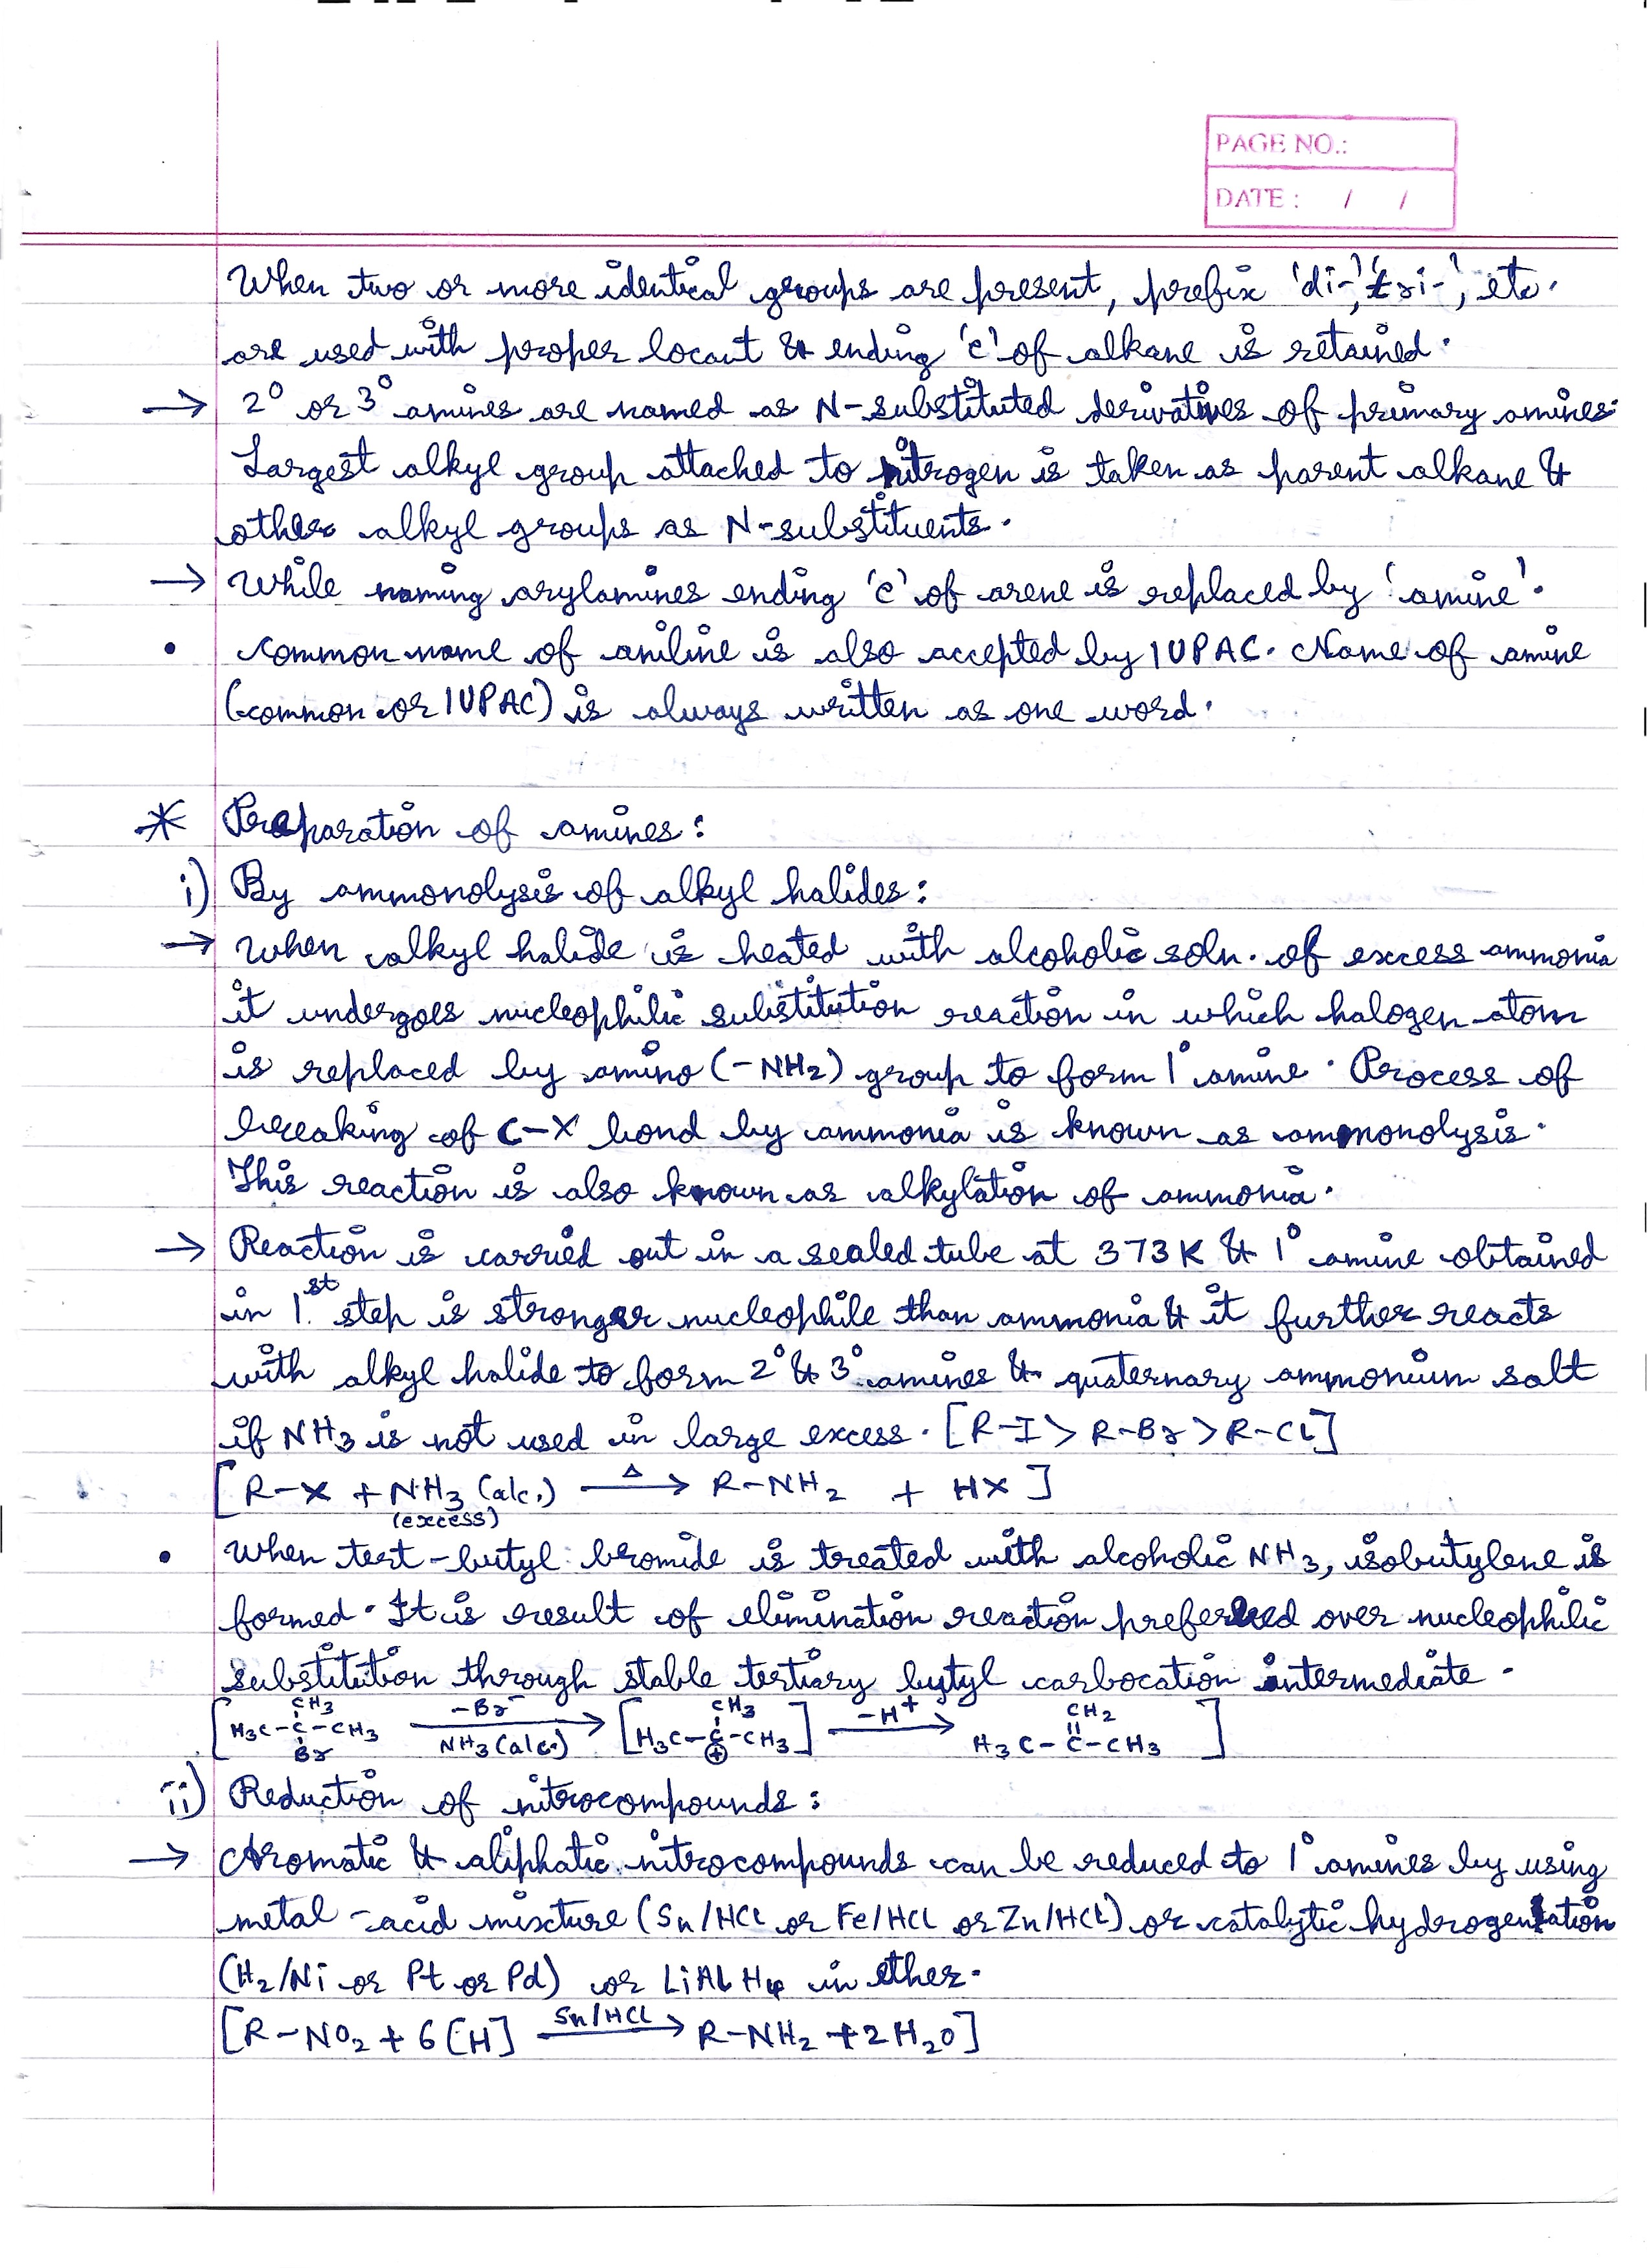 PAGE NO.:
DATE : / /
When two or more identical groups are present, prefix 'di-', 'tri-', etc.
are used with proper locant & ending 'e' of alkane is retained.
→ 2° or 3° amines are named as N-substituted derivatives of primary amines.
Largest alkyl group attached to nitrogen is taken as parent alkane &
other alkyl groups as N-substituents.
→ While naming arylamines ending 'e' of arene is replaced by 'amine'.
• Common name of aniline is also accepted by IUPAC. Name of amine
(common or IUPAC) is always written as one word.
* Preparation of amines:
i) By ammonolysis of alkyl halides:
→ When alkyl halide is heated with alcoholic soln. of excess ammonia
it undergoes nucleophilic substitution reaction in which halogen atom
is replaced by amino (-NH₂) group to form 1° amine. Process of
breaking of C-X bond by ammonia is known as ammonolysis.
This reaction is also known as alkylation of ammonia.
→ Reaction is carried out in a sealed tube at 373K & 1° amine obtained
in 1st step is stronger nucleophile than ammonia & it further reacts
with alkyl halide to form 2° & 3° amines & quaternary ammonium salt
if NH₃ is not used in large excess. [R-I > R-Br > R-Cl]
[R-X + NH₃ (alc.) —Δ→ R-NH₂ + HX]
(excess)
• When tert-butyl bromide is treated with alcoholic NH₃, isobutylene is
formed. It is result of elimination reaction preferred over nucleophilic
substitution through stable tertiary butyl carbocation intermediate.
CH₃ -Br⁻ CH₃ -H⁺ CH₂
[H₃C-C-CH₃ → [H₃C-C-CH₃] → H₃C-C-CH₃]
Br NH₃(alc.) ⊕
ii) Reduction of nitrocompounds:
→ Aromatic & aliphatic nitrocompounds can be reduced to 1° amines by using
metal-acid mixture (Sn/HCl or Fe/HCl or Zn/HCl) or catalytic hydrogenation
(H₂/Ni or Pt or Pd) or LiAlH₄ in ether.
[R-NO₂ + 6[H] —Sn/HCl→ R-NH₂ + 2H₂O]